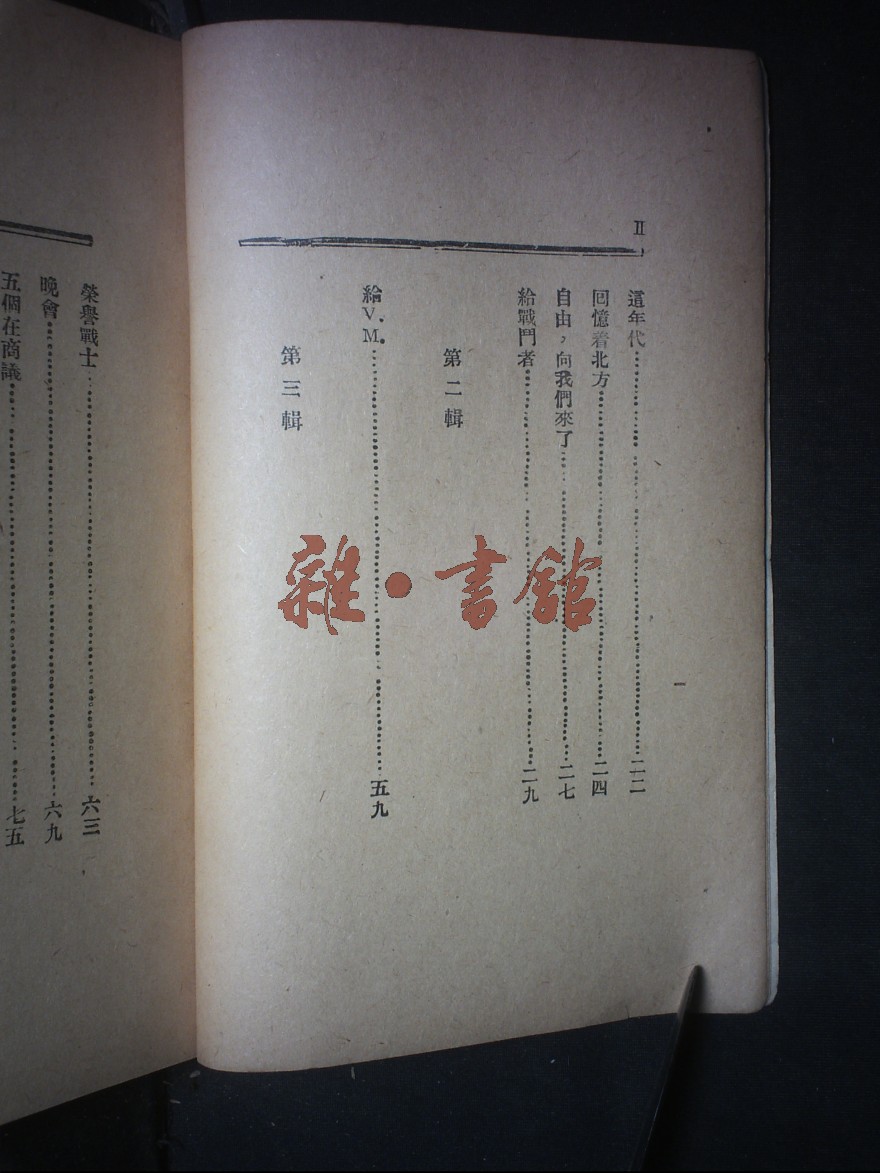 II
這年代……二二
回憶着北方……二四
自由，向我們來了……二七
給戰鬥者……二九
第二輯
給V.M.……五九
第三輯
榮譽戰士……六三
晚會……六九
五個在商議……七五
雜·書館